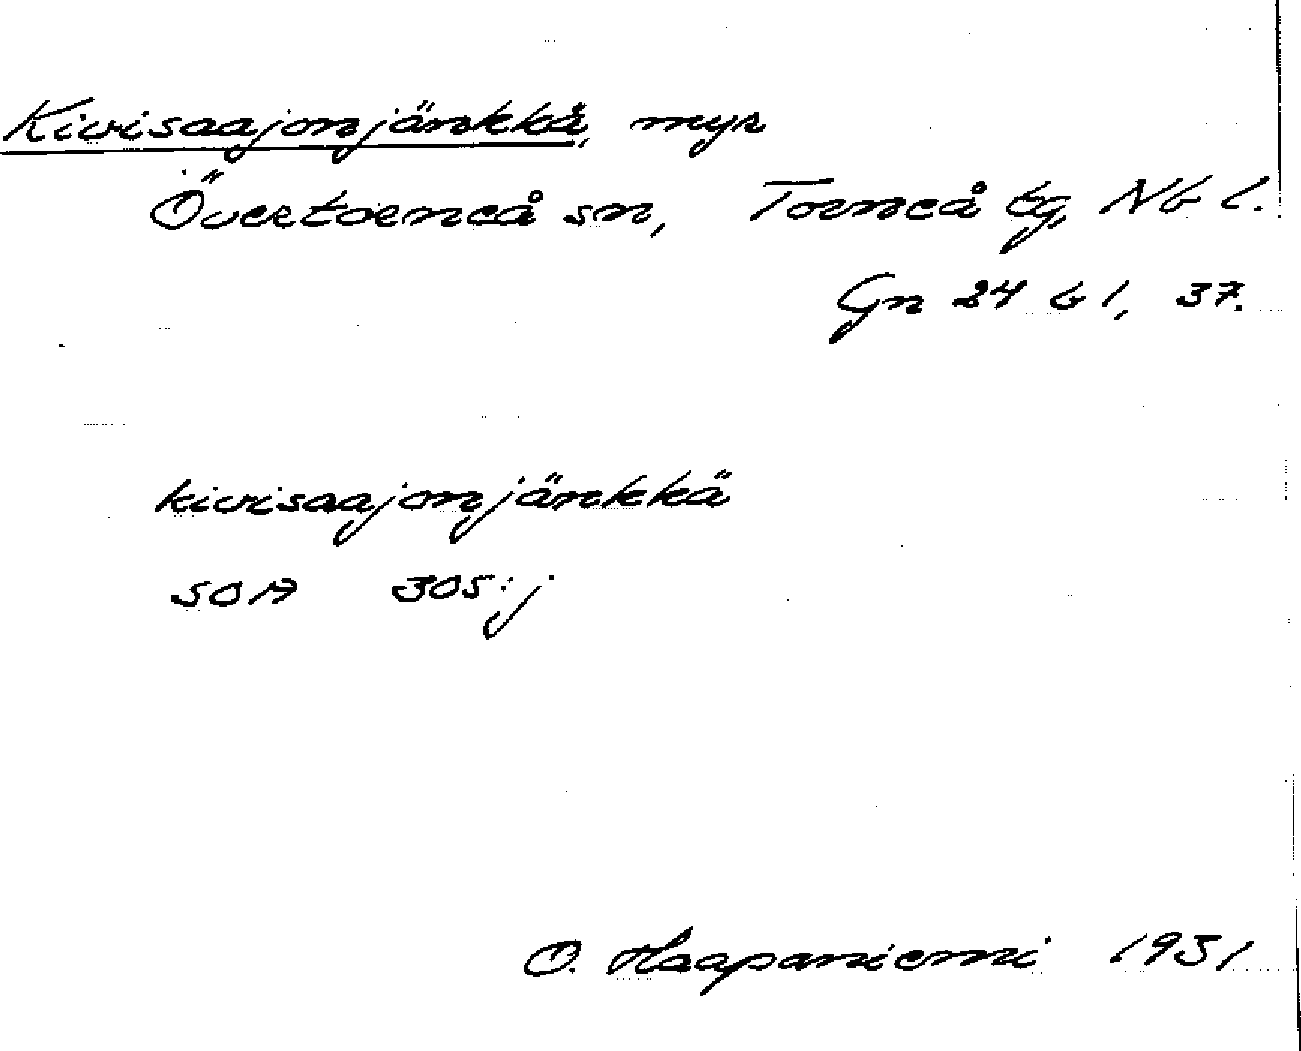 Kivisaajonjänkkä, myr
Övertorneå sn, Torneå tg, Nb l.
Gn 24 b 1, 37.
kivisaajonjänkkä
SOA 305:j
O. Haapaniemi 1931